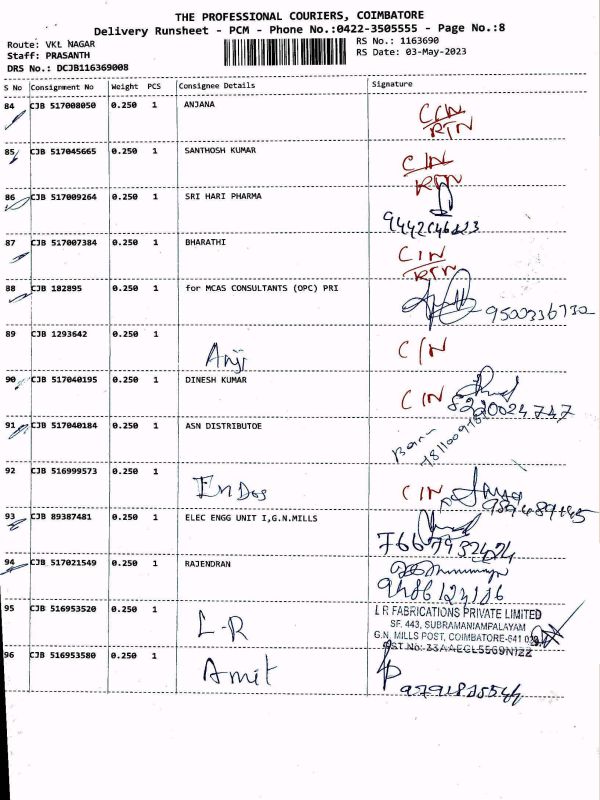 THE PROFESSIONAL COURIERS, COIMBATORE
Delivery Runsheet - PCM - Phone No.:0422-3505555 - Page No.:8
Route: VKL NAGAR
RS No.: 1163690
Staff: PRASANTH
RS Date: 03-May-2023
DRS No.: DCJB116369008
S No Consignment No Weight PCS Consignee Details Signature
84 CJB 517008050 0.250 1 ANJANA
CIN
RTN
85 CJB 517045665 0.250 1 SANTHOSH KUMAR
CIN
RTN
86 CJB 517009264 0.250 1 SRI HARI PHARMA
87 CJB 517007384 0.250 1 BHARATHI
CIN
RTN
88 CJB 182895 0.250 1 for MCAS CONSULTANTS (OPC) PRI
9500336732
89 CJB 1293642 0.250 1
Anji C/N
90 CJB 517040195 0.250 1 DINESH KUMAR
CIN
8220024747
91 CJB 517040184 0.250 1 ASN DISTRIBUTOE
92 CJB 516999573 0.250 1
EnDos CIN
93 CJB 89387481 0.250 1 ELEC ENGG UNIT I,G.N.MILLS
94 CJB 517021549 0.250 1 RAJENDRAN
95 CJB 516953520 0.250 1
L-R
L R FABRICATIONS PRIVATE LIMITED
SF. 443, SUBRAMANIAMPALAYAM
G.N. MILLS POST, COIMBATORE-641 029
GST No: 33AAECL5569N1ZZ
96 CJB 516953580 0.250 1
Amit